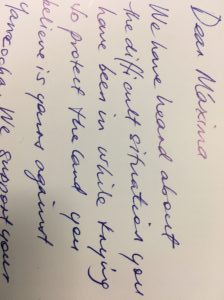 Dear Maxima
We have heard about
the difficult situation you
have been in while trying
to protect the land you
believe is yours against
Yanacocha. We support your